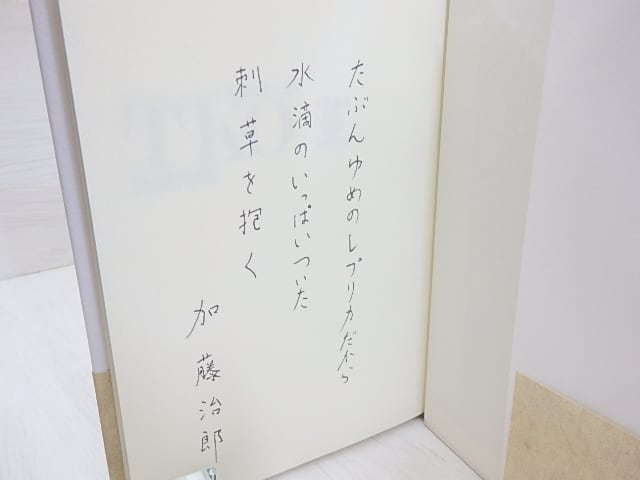 たぶんゆめのレプリカだから
水滴のいっぱいついた
刺草を抱く
加藤治郎